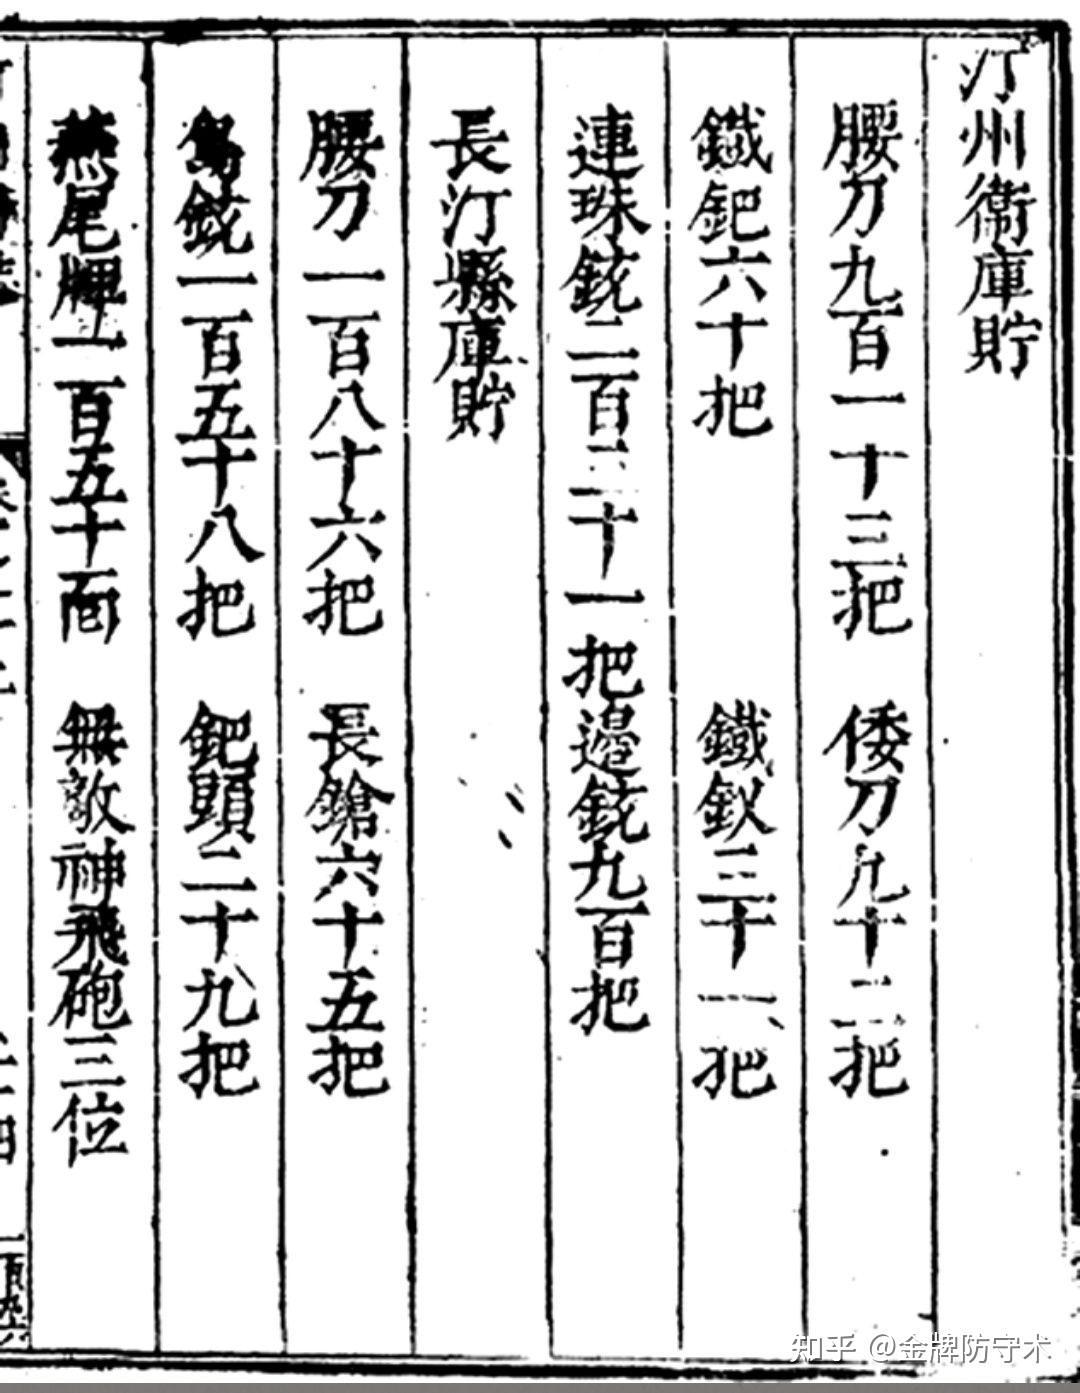 汀州衛庫貯
腰刀九百一十三把　倭刀九十二把
鐵鈀六十把　鐵釵三十一把
連珠銃二百二十一把邉銃九百把
長汀縣庫貯
腰刀一百八十六把　長鎗六十五把
鳥銃一百五十八把　鈀頭二十九把
燕尾牌一百五十面　無敵神飛砲三位
知乎 @金牌防守术